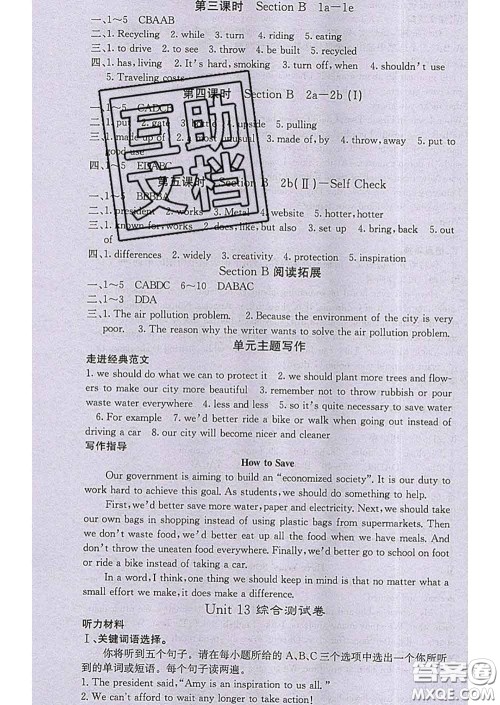 第三课时 Section B 1a—1e
一、1～5 CBAAB
二、1. Recycling 2. while 3. turn 4. riding 5. eating
三、1. to drive 2. to see 3. throw 4. be built 5. recycled
四、1. has, living 2. It's hard, smoking 3. turn off, when 4. shouldn't use
5. Traveling, costs
第四课时 Section B 2a—2b (Ⅰ)
一、1～5 CADCB
二、1. put 2. gate 3. bottle 4. upside 5. pulling
三、1. made up of 2. most unusual 3. made of, by 4. throw, away 5. put to
good use
四、1～5
第五课时 Section B 2b(Ⅱ)—Self Check
一、1～5
二、1. president 2. works 3. Metal 4. website 5. hotter, hotter
三、1. known for, works 2. does, like, but also 3. set up 4. bring, back 5. out
of
四、1. differences 2. widely 3. creativity 4. protection 5. inspiration
Section B 阅读拓展
一、1～5 CABDC 6～10 DABAC
二、1～3 DDA
三、1. The air pollution problem. 2. Because the environment of the city is very
poor. 3. The reason why the writer wants to solve the air pollution problem.
单元主题写作
走进经典范文
1. we should do what we can to protect it 2. we should plant more trees and flow-
ers to make our city more beautiful 3. remember not to throw rubbish or pour
waste water everywhere 4. less and less 5. so it's quite necessary to save water
6. For example 7. we'd better ride a bike or walk when going out instead of
driving a car 8. our city will become nicer and cleaner
写作指导
How to Save
Our government is aiming to build an “economized society”. It is our duty
to work hard to achieve this goal. As students, we should do something to help.
First, we'd better save more water, paper and electricity. Next, we should take
our own bags in shopping instead of using plastic bags from supermarkets. Then
we don't waste food, we'd better eat up all the food when we have meals. And
don't throw the uneaten food everywhere. Finally, we'd better go to school on foot
or ride a bike instead of taking a car.
In a word, I think, one thing we should keep in mind is that no matter what a
small effort we make, it does make a difference.
Unit 13 综合测试卷
听力材料
Ⅰ.关键词语选择。
你将听到五个句子，请在每小题所给的 A、B、C 三个选项中选出一个你所听
到的单词或短语。每个句子读两遍。
1. The president said, “Amy is an inspiration to us all.”
2. We can't afford to wait any longer to take action!
互助
文档
答案圈
MXQE.COM